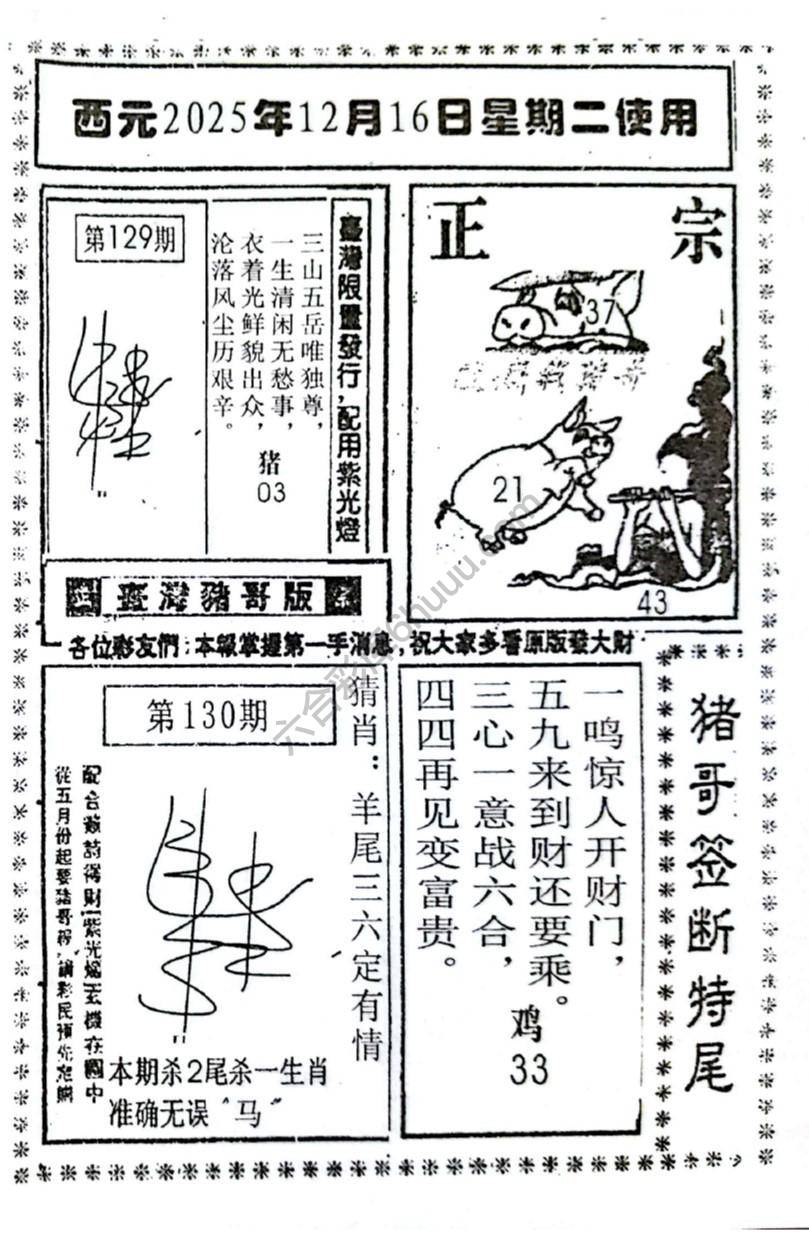 西元2025年12月16日星期二使用
第129期
三山五岳唯独尊，
一生清闲无愁事，
衣着光鲜貌出众，
沦落风尘历艰辛。
猪
03
臺灣限量發行，配用紫光燈
正宗
37
21
43
臺灣豬哥版
各位彩友們：本報掌握第一手消息，祝大家多看原版發大財
第130期
猜肖：羊尾三六定有情
從五月份起要猪哥報，請彩民預先定購
本期杀2尾杀一生肖
准确无误“马”
一鸣惊人开财门，
五九来到财还要乘。
三心一意战六合，
四四再见变富贵。
鸡
33
猪哥签断特尾
六合彩
huuu.com